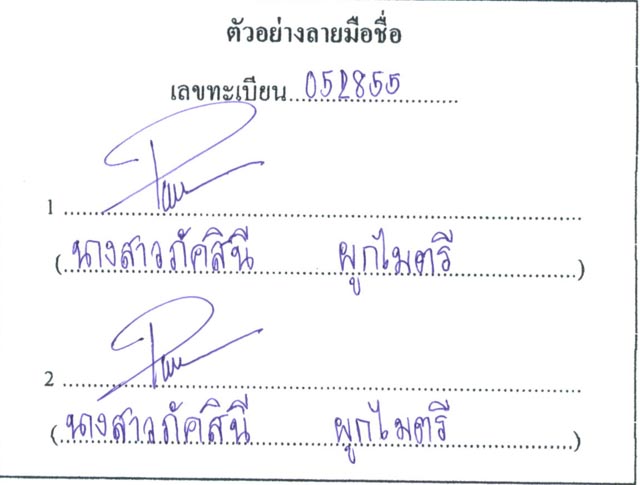 ตัวอย่างลายมือชื่อ
เลขทะเบียน 052855
1
(นางสาวภัคสินี ผูกไมตรี)
2
(นางสาวภัคสินี ผูกไมตรี)